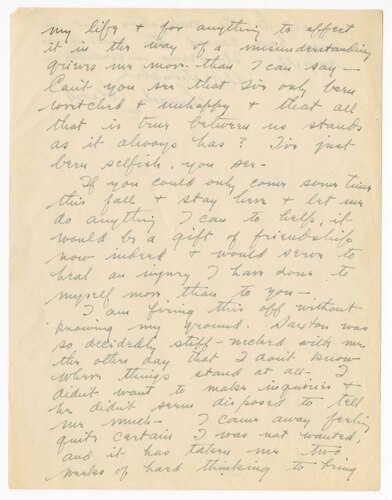 my life & for anything to affect
it in the way of a misunderstanding
grieves me more than I can say —
Can't you see that I've only been
wretched & unhappy & that all
that is true between us stands
as it always has? I've just
been selfish, you see —
If you could only come some time
this fall & stay here & let me
do anything I can to help, it
would be a gift of friendship
now indeed & would serve to
heal an injury I have done to
myself more than to you —
I am firing this off without
knowing my ground. Saxton was
so decidedly stiff-necked with me
the other day that I don't know
where things stand at all — I
didn't want to make inquiries &
he didn't seem disposed to tell
me much — I came away feeling
quite certain I was not wanted,
and it has taken me two
weeks of hard thinking to bring